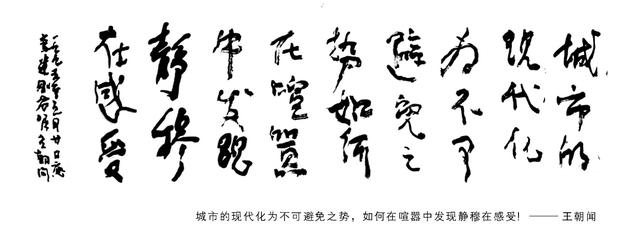 城市的
现代化
为不可
避免之
势如何
在喧嚣
中发现
静穆
在感受
王朝闻
城市的现代化为不可避免之势，如何在喧器中发现静穆在感受! —— 王朝闻